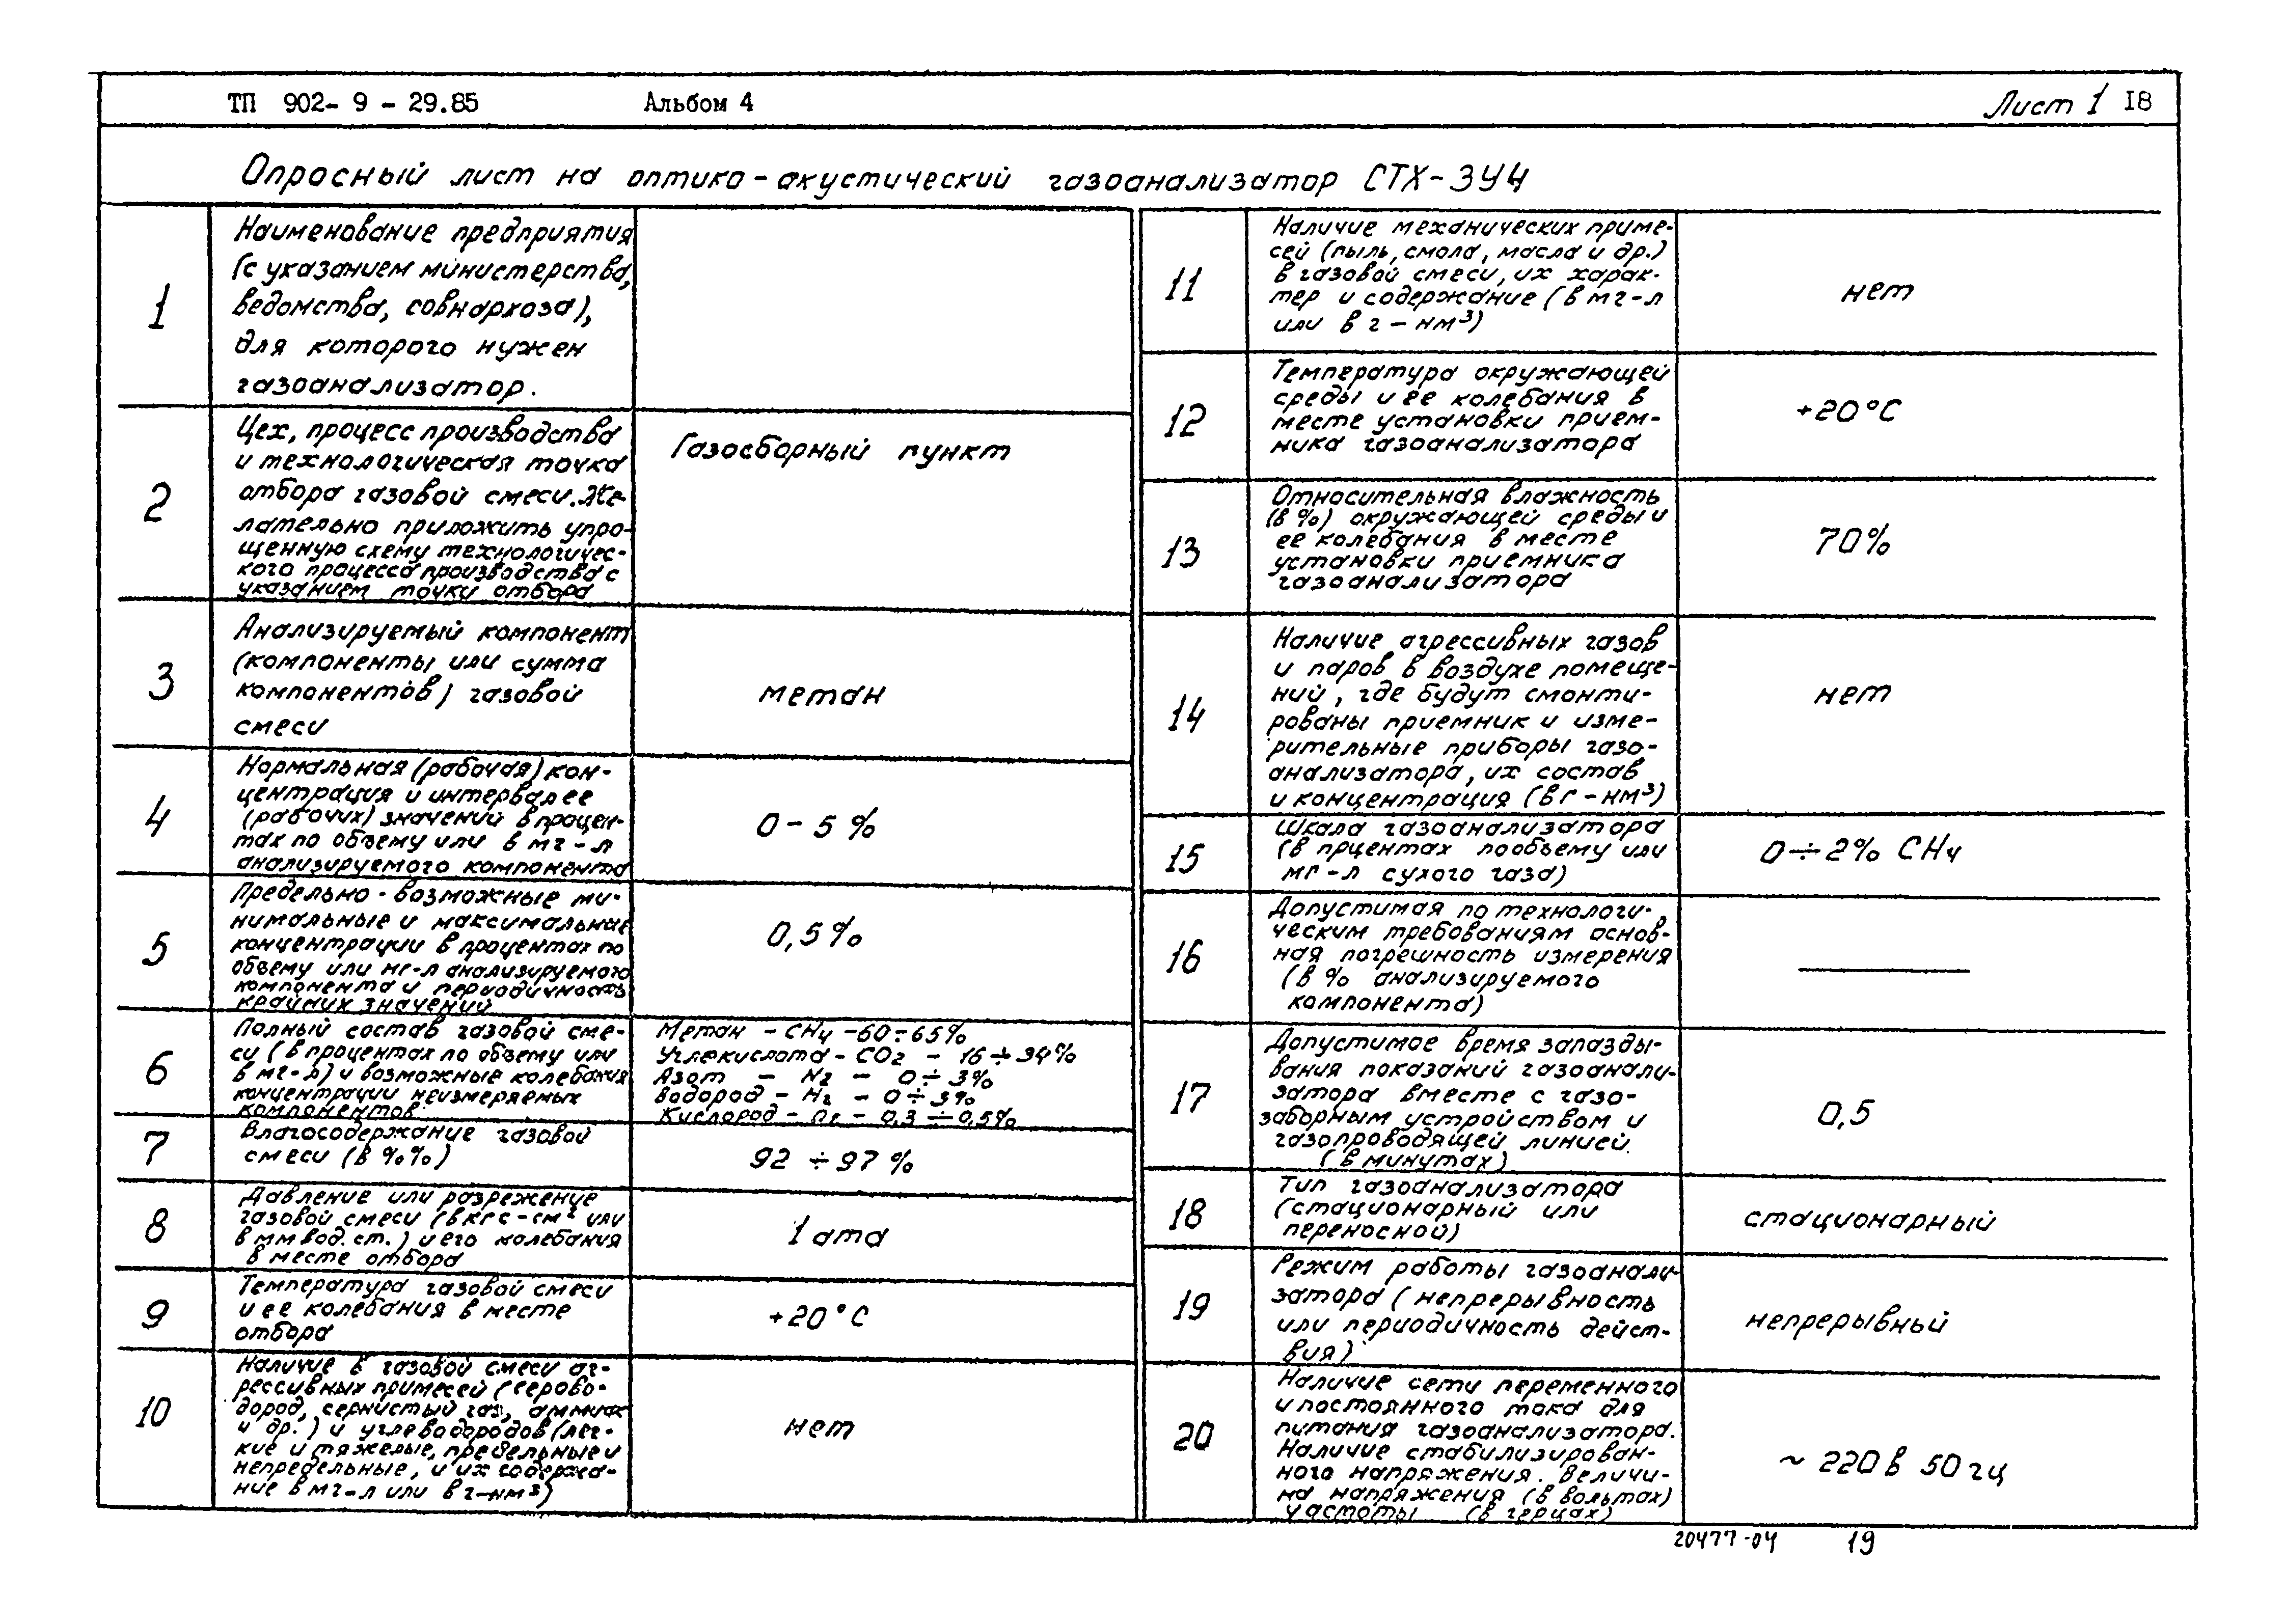 ТП 902- 9 - 29.85
Альбом 4
Лист 1 I8
Опросный лист на оптико-акустический газоанализатор СТХ-3У4
1
Наименование предприятия
(с указанием министерства,
ведомства, совнархоза),
для которого нужен
газоанализатор.
2
Цех, процесс производства
и технологическая точка
отбора газовой смеси. Же-
лательно приложить упро-
щенную схему технологичес-
кого процесса производства с
указанием точки отбора
Газосборный пункт
3
Анализируемый компонент
(компоненты или сумма
компонентов) газовой
смеси
метан
4
Нормальная (рабочая) кон-
центрация и интервал ее
(рабочих) значений в процен-
тах по объему или в мг-л
анализируемого компонента
0-5%
5
Предельно-возможные ми-
нимальные и максимальные
концентрации в процентах по
объему или мг-л анализируемого
компонента и периодичность
крайних значений
0,5%
6
Полный состав газовой сме-
си (в процентах по объему или
в мг-л) и возможные колебания
концентрации неизмеряемых
компонентов.
Метан - CH4 - 60÷65%
Углекислота - CO2 - 16÷34%
Азот - N2 - 0÷3%
Водород - H2 - 0÷3%
Кислород - O2 - 0,3÷0,5%
7
Влагосодержание газовой
смеси (в %%)
92÷97%
8
Давление или разрежение
газовой смеси (в кгс-см² или
в мм вод. ст.) и его колебания
в месте отбора
1 ата
9
Температура газовой смеси
и ее колебания в месте
отбора
+20°С
10
Наличие в газовой смеси аг-
рессивных примесей (серово-
дород, сернистый газ, аммиак
и др.) и углеводородов (лег-
кие и тяжелые, предельные и
непредельные, и их содержа-
ние в мг-л или в г-нм³)
нет
11
Наличие механических приме-
сей (пыль, смола, масла и др.)
в газовой смеси, их харак-
тер и содержание (в мг-л
или в г-нм³)
нет
12
Температура окружающей
среды и ее колебания в
месте установки прием-
ника газоанализатора
+20°С
13
Относительная влажность
(в %) окружающей среды и
ее колебания в месте
установки приемника
газоанализатора
70%
14
Наличие агрессивных газов
и паров в воздухе помеще-
ний, где будут смонти-
рованы приемник и изме-
рительные приборы газо-
анализатора, их состав
и концентрация (в г-нм³)
нет
15
Шкала газоанализатора
(в прцентах по объему или
мг-л сухого газа)
0÷2% CH4
16
Допустимая по технологи-
ческим требованиям основ-
ная погрешность измерения
(в % анализируемого
компонента)
17
Допустимое время запазды-
вания показаний газоанали-
затора вместе с газо-
заборным устройством и
газопроводящей линией.
(в минутах)
0,5
18
Тип газоанализатора
(стационарный или
переносной)
стационарный
19
Режим работы газоанали-
затора (непрерывность
или периодичность дейст-
вия)
непрерывный
20
Наличие сети переменного
и постоянного тока для
питания газоанализатора.
Наличие стабилизирован-
ного напряжения. Величи-
на напряжения (в вольтах)
частоты (в герцах)
~ 220 в 50 гц
20477-04 19